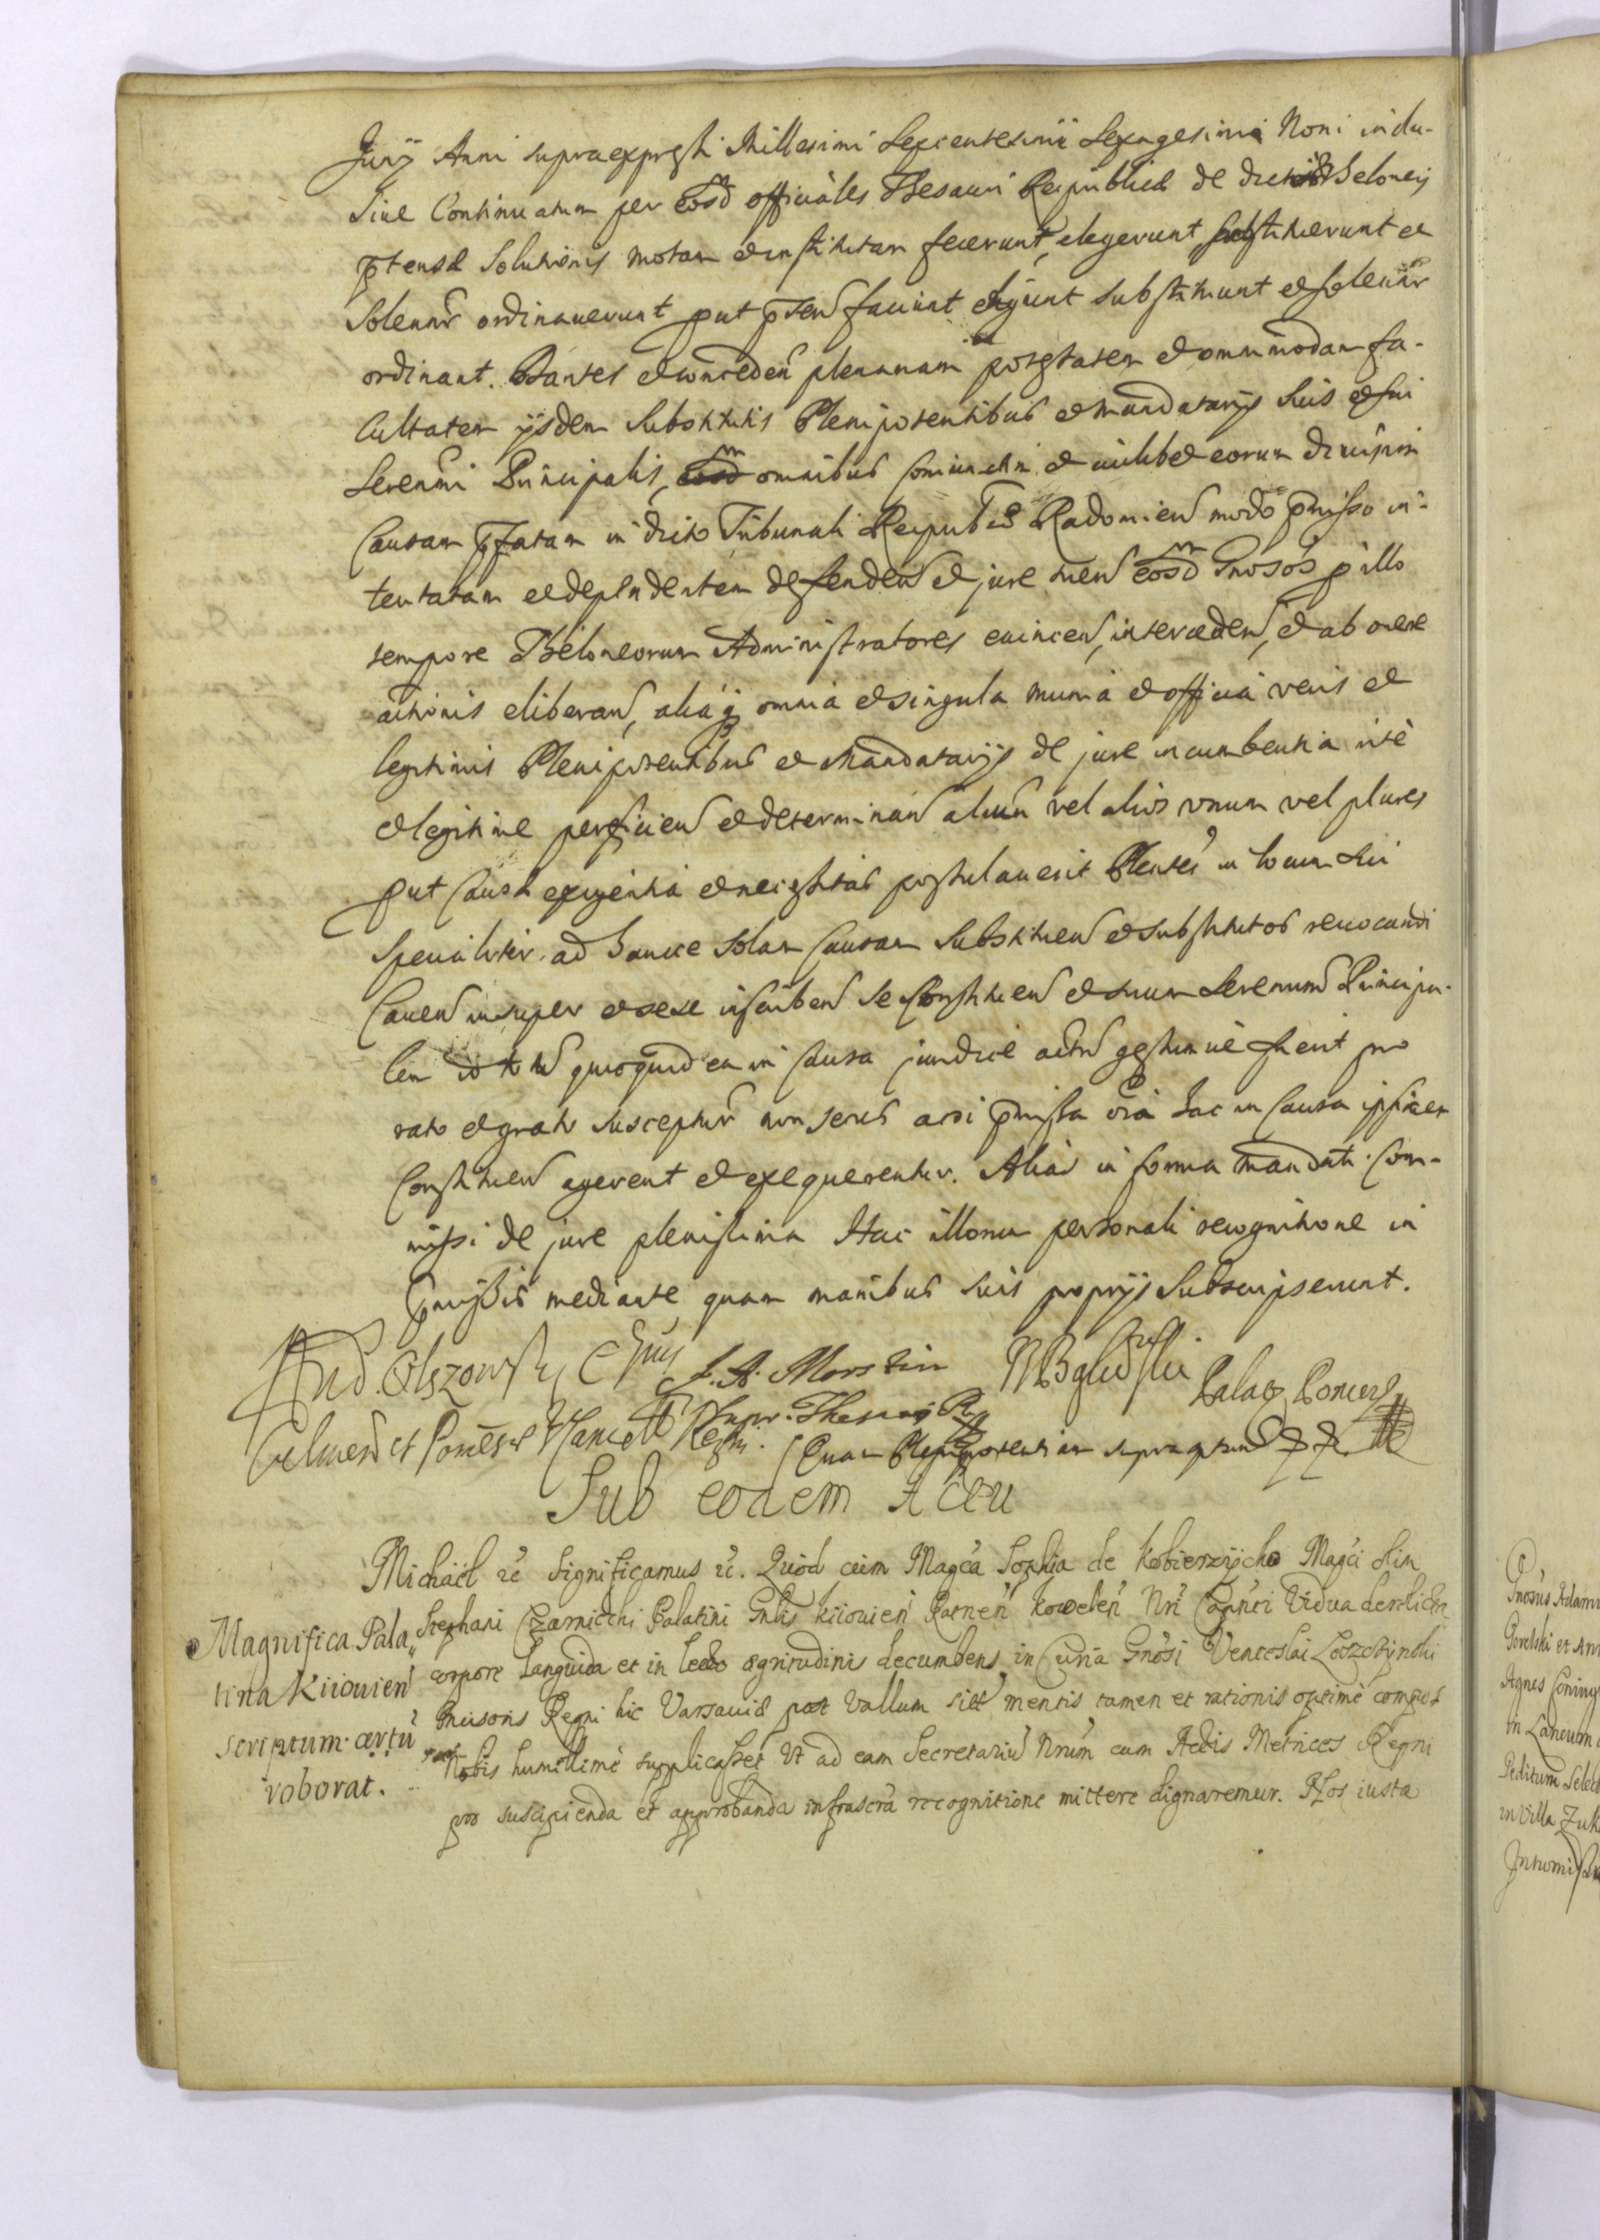 Junij Anni supraexpressi Millesimi Sexcentesimi Sexagesimi Noni indu-
sive Continuatum per eosd officiales Thesauri Reipublicae de dictis Theloneis
ptensae Solutionis motam et institutam fecerunt, elegerunt substituerunt et
Solennr ordinaverunt put pnsen faciunt eligunt substituunt et solennr
ordinant. Dantes et conceden plenariam potestatem et omnimodam fa-
cultatem ijsdem substitutis Plenipotentibus et Mandatarijs suis et sui
Serenmi Principalis, omnibus coniunctim et cuilibet eorum divisim
Causam pfatam in dicto Tribunali Reipublcae Radomien modo pmisso in-
tentatam et dependentem defenden et jure tuen eosd Gnosos p illo
tempore Theloneorum Administratores evincen, interceden, et ab onere
actionis eliberan, aliaq omnia et singula munia et officia veris et
legitimis Plenipotentibus et Mandatarijs de jure incumbentia rite
et legitime perficien et determinan alium vel alios unum vel plures
put Causae exigentia et necessitas postulaverit Plentes in locum sui
specialiter ad hancce solam Causam substituen et substitutos revocandi
Caven insuper et sese inscriben se Constituen et suum Serenmum Principa-
lem quicquid ea in Causa juridice actu gestumve fuerit pro
rato et grato suscepturos non secus acsi pmissa oia hac in Causa ipsimet
Constituen agerent et exequerentur. Alias in forma mandati Com-
missi de jure plenissima Hac illorum personali recognitione in
pmissis mediante quam manibus suis proprijs subscripserunt.
And. Olszowski Epus J. A. Morstin
Culmen et Pomes. ViceCancell Regni. Supr. Thesaur R. Palat Pomer
Quam Plenipotentiam supra
Sub eodem Actu
Michaël rc Significamus rc. Quod cum Magca Sophia de Kobierzycko Magci olim
Stephani Czarniecki Palatini Gnlis Kiiovien Ratnen Kowelen Nri Capnei Vidua derelicta
corpore languida et in lecto aegritudinis decumbens in Curia Gnosi Venceslai Leszczynski
Incisoris Regni hic Varsaviae post Vallum sita mentis tamen et rationis optime compos
Nobis humillime supplicasset Ut ad eam Secretariu Nrum cum Actis Metrices Regni
pro suscipienda et approbanda infrascra recognitione mittere dignaremur. Nos iusta
Magnifica Pala„
tina Kiiovien
scriptum certu
roborat.
Gnosus Adam
Gorelski et
Agnes
in Laneum
Peditum Select
in Villa Zuk